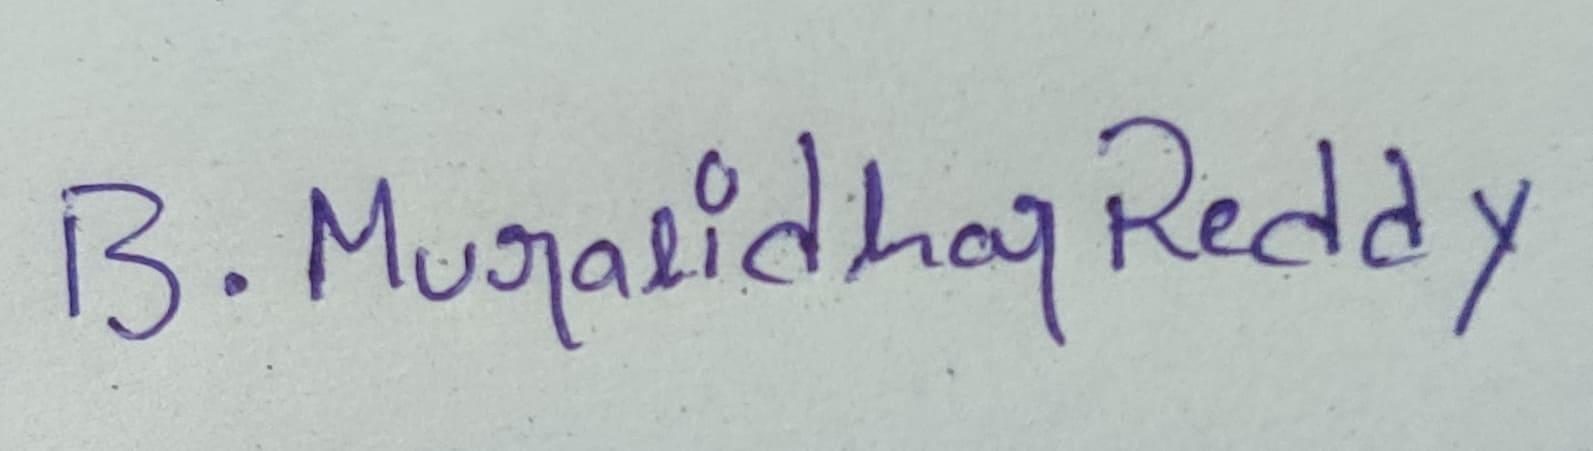 B. Muralidhar Reddy